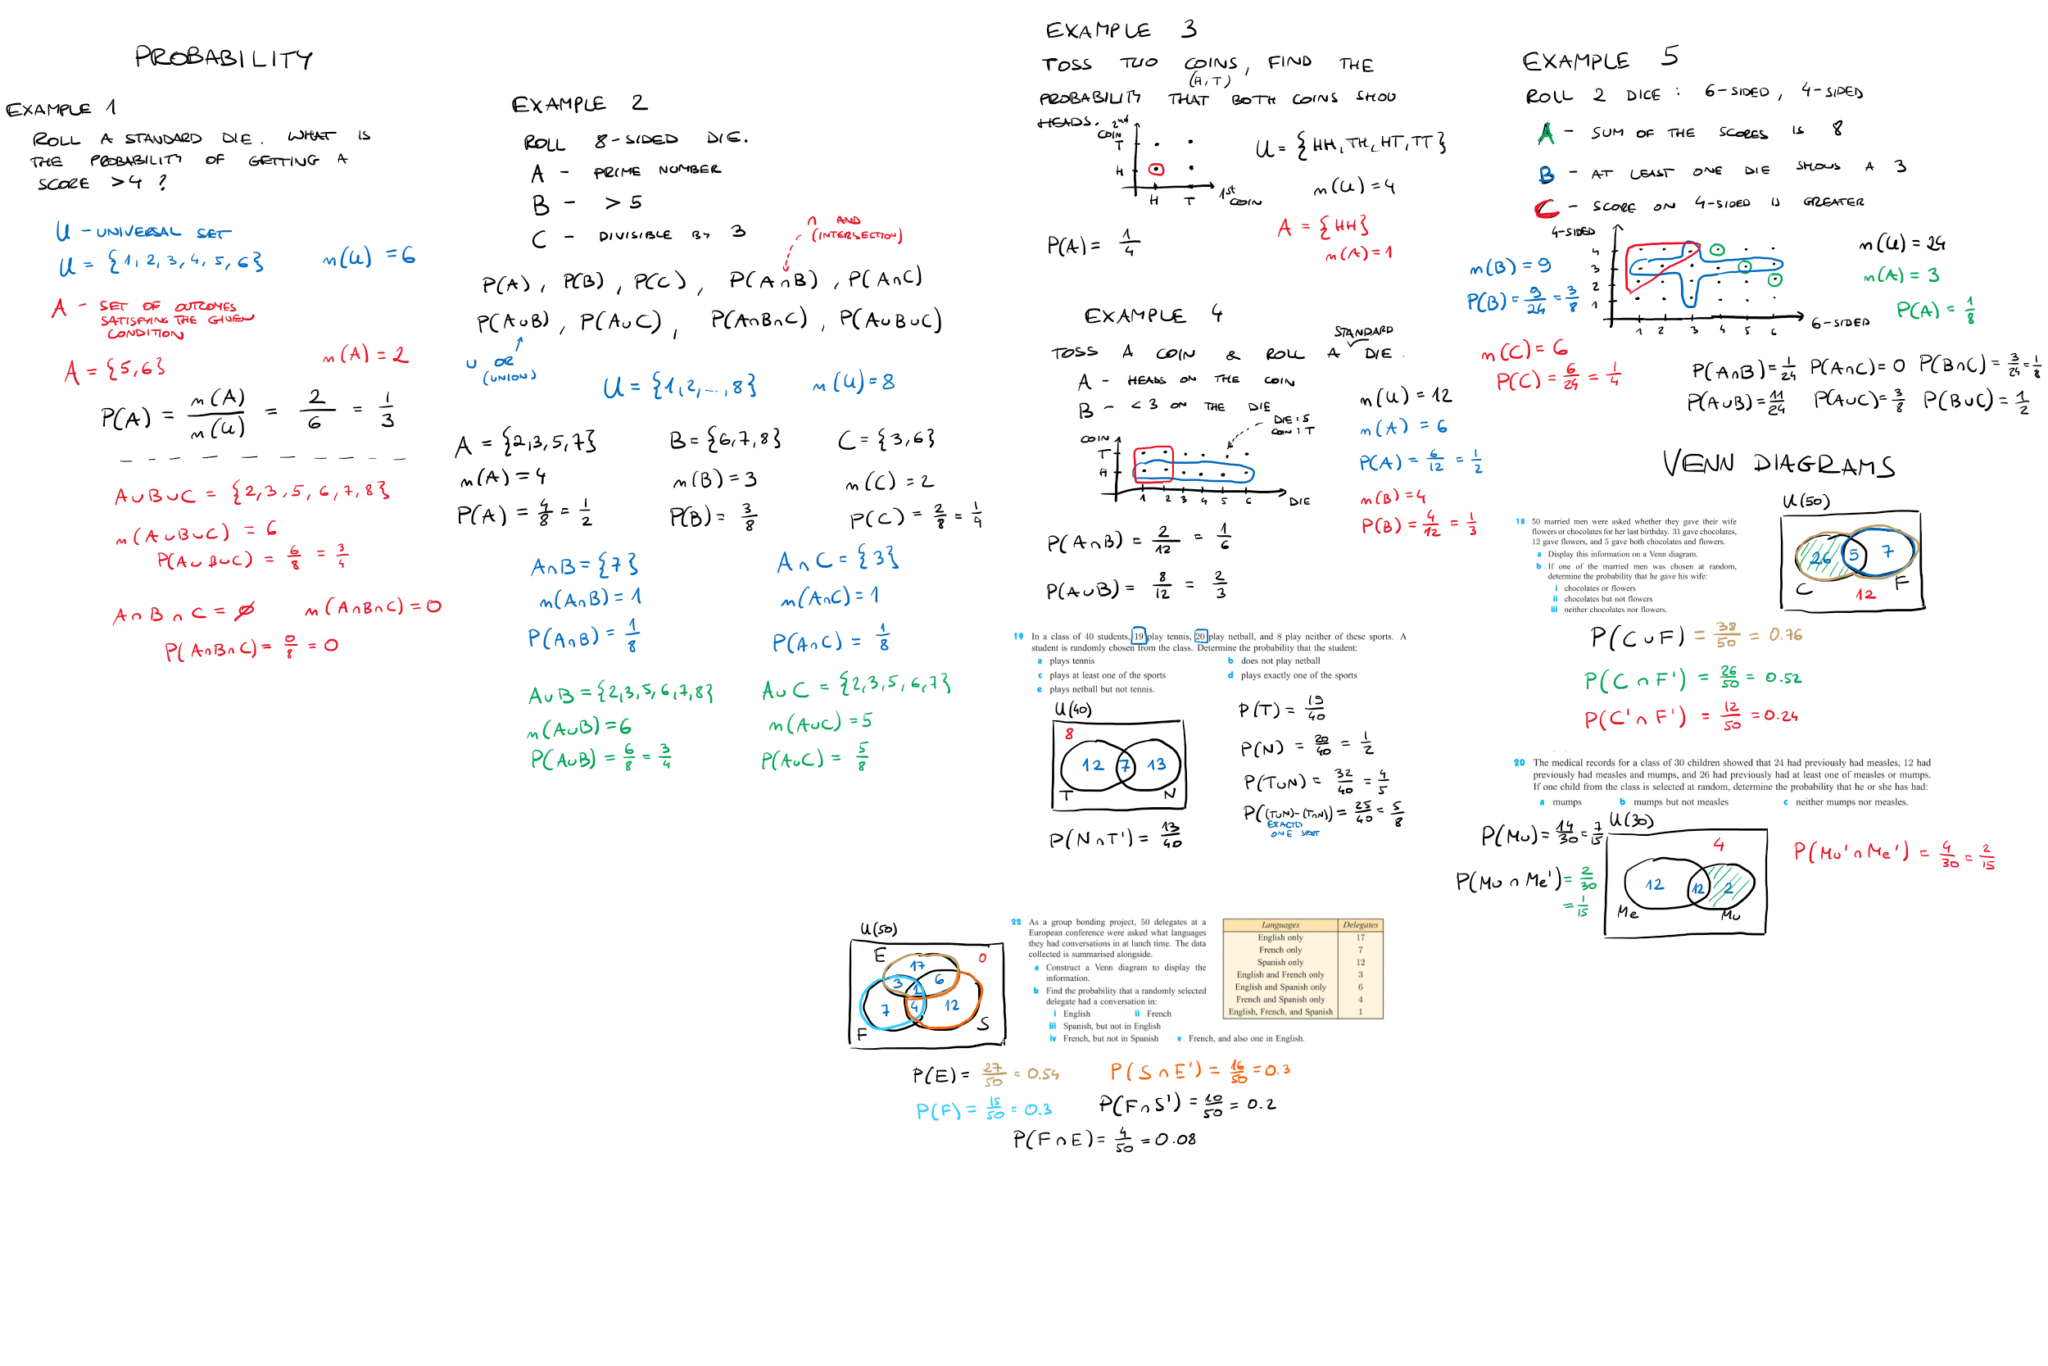 PROBABILITY
EXAMPLE 1
ROLL A STANDARD DIE. WHAT IS
THE PROBABILITY OF GETTING A
SCORE >4 ?
U - UNIVERSAL SET
U = {1, 2, 3, 4, 5, 6} n(U) = 6
A - SET OF OUTCOMES
SATISFYING THE GIVEN
CONDITION
A = {5,6} n(A) = 2
P(A) = n(A)/n(U) = 2/6 = 1/3
A∪B∪C = {2,3,5,6,7,8}
n(A∪B∪C) = 6
P(A∪B∪C) = 6/8 = 3/4
A∩B∩C = ∅ n(A∩B∩C) = 0
P(A∩B∩C) = 0/8 = 0
EXAMPLE 2
ROLL 8-SIDED DIE.
A - PRIME NUMBER
B - > 5
C - DIVISIBLE BY 3
∩ AND
(INTERSECTION)
P(A), P(B), P(C), P(A∩B), P(A∩C)
P(A∪B), P(A∪C), P(A∩B∩C), P(A∪B∪C)
∪ OR
(UNION)
U = {1,2,...,8} n(U)=8
A = {2,3,5,7} B = {6,7,8} C = {3,6}
n(A) = 4 n(B) = 3 n(C) = 2
P(A) = 4/8 = 1/2 P(B) = 3/8 P(C) = 2/8 = 1/4
A∩B = {7} A∩C = {3}
n(A∩B) = 1 n(A∩C) = 1
P(A∩B) = 1/8 P(A∩C) = 1/8
A∪B = {2,3,5,6,7,8} A∪C = {2,3,5,6,7}
n(A∪B) = 6 n(A∪C) = 5
P(A∪B) = 6/8 = 3/4 P(A∪C) = 5/8
EXAMPLE 3
TOSS TWO COINS, FIND THE
(H,T)
PROBABILITY THAT BOTH COINS SHOW
HEADS.
2nd
COIN
T
H
H T
1st
COIN
U = {HH, TH, HT, TT}
n(U) = 4
A = {HH}
n(A) = 1
P(A) = 1/4
EXAMPLE 4
STANDARD
TOSS A COIN & ROLL A DIE.
A - HEADS ON THE COIN
B - <3 ON THE DIE
DIE : 5
COIN : T
COIN
T
H
1 2 3 4 5 6
DIE
n(U) = 12
n(A) = 6
P(A) = 6/12 = 1/2
n(B) = 4
P(B) = 4/12 = 1/3
P(A∩B) = 2/12 = 1/6
P(A∪B) = 8/12 = 2/3
19 In a class of 40 students, 19 play tennis, 20 play netball, and 8 play neither of these sports. A
student is randomly chosen from the class. Determine the probability that the student:
a plays tennis b does not play netball
c plays at least one of the sports d plays exactly one of the sports
e plays netball but not tennis.
U(40)
8
12 7 13
T N
P(T) = 19/40
P(N) = 20/40 = 1/2
P(T∪N) = 32/40 = 4/5
P((T∪N)-(T∩N)) = 25/40 = 5/8
EXACTLY
ONE SPORT
P(N∩T') = 13/40
EXAMPLE 5
ROLL 2 DICE : 6-SIDED, 4-SIDED
A - SUM OF THE SCORES IS 8
B - AT LEAST ONE DIE SHOWS A 3
C - SCORE ON 4-SIDED IS GREATER
4-SIDED
4
3
2
1
1 2 3 4 5 6
6-SIDED
n(B) = 9
P(B) = 9/24 = 3/8
n(C) = 6
P(C) = 6/24 = 1/4
n(U) = 24
n(A) = 3
P(A) = 1/8
P(A∩B) = 1/24 P(A∩C) = 0 P(B∩C) = 3/24 = 1/8
P(A∪B) = 11/24 P(A∪C) = 3/8 P(B∪C) = 1/2
VENN DIAGRAMS
18 50 married men were asked whether they gave their wife
flowers or chocolates for her last birthday. 31 gave chocolates,
12 gave flowers, and 5 gave both chocolates and flowers.
a Display this information on a Venn diagram.
b If one of the married men was chosen at random,
determine the probability that he gave his wife:
i chocolates or flowers
ii chocolates but not flowers
iii neither chocolates nor flowers.
U(50)
26 5 7
C F
12
P(C∪F) = 38/50 = 0.76
P(C∩F') = 26/50 = 0.52
P(C'∩F') = 12/50 = 0.24
20 The medical records for a class of 30 children showed that 24 had previously had measles, 12 had
previously had measles and mumps, and 26 had previously had at least one of measles or mumps.
If one child from the class is selected at random, determine the probability that he or she has had:
a mumps b mumps but not measles c neither mumps nor measles.
P(Mu) = 14/30 = 7/15
P(Mu∩Me') = 2/30
= 1/15
U(30)
4
12 12 2
Me Mu
P(Mu'∩Me') = 4/30 = 2/15
U(50)
E 0
17
3 6
1
7 4 12
F S
22 As a group bonding project, 50 delegates at a
European conference were asked what languages
they had conversations in at lunch time. The data
collected is summarised alongside.
a Construct a Venn diagram to display the
information.
b Find the probability that a randomly selected
delegate had a conversation in:
i English ii French
iii Spanish, but not in English
iv French, but not in Spanish v French, and also one in English.
Languages Delegates
English only 17
French only 7
Spanish only 12
English and French only 3
English and Spanish only 6
French and Spanish only 4
English, French, and Spanish 1
P(E) = 27/50 = 0.54 P(S∩E') = 16/50 = 0.3
P(F) = 15/50 = 0.3 P(F∩S') = 10/50 = 0.2
P(F∩E) = 4/50 = 0.08